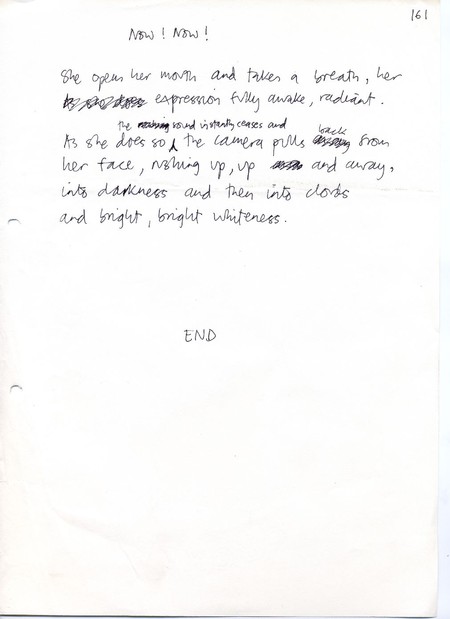 161
Now! Now!
She opens her mouth and takes a breath, her
expression fully awake, radiant.
the sound instantly ceases and
back
As she does so, the camera pulls from
her face, rushing up, up and away,
into darkness and then into clouds
and bright, bright whiteness.
END